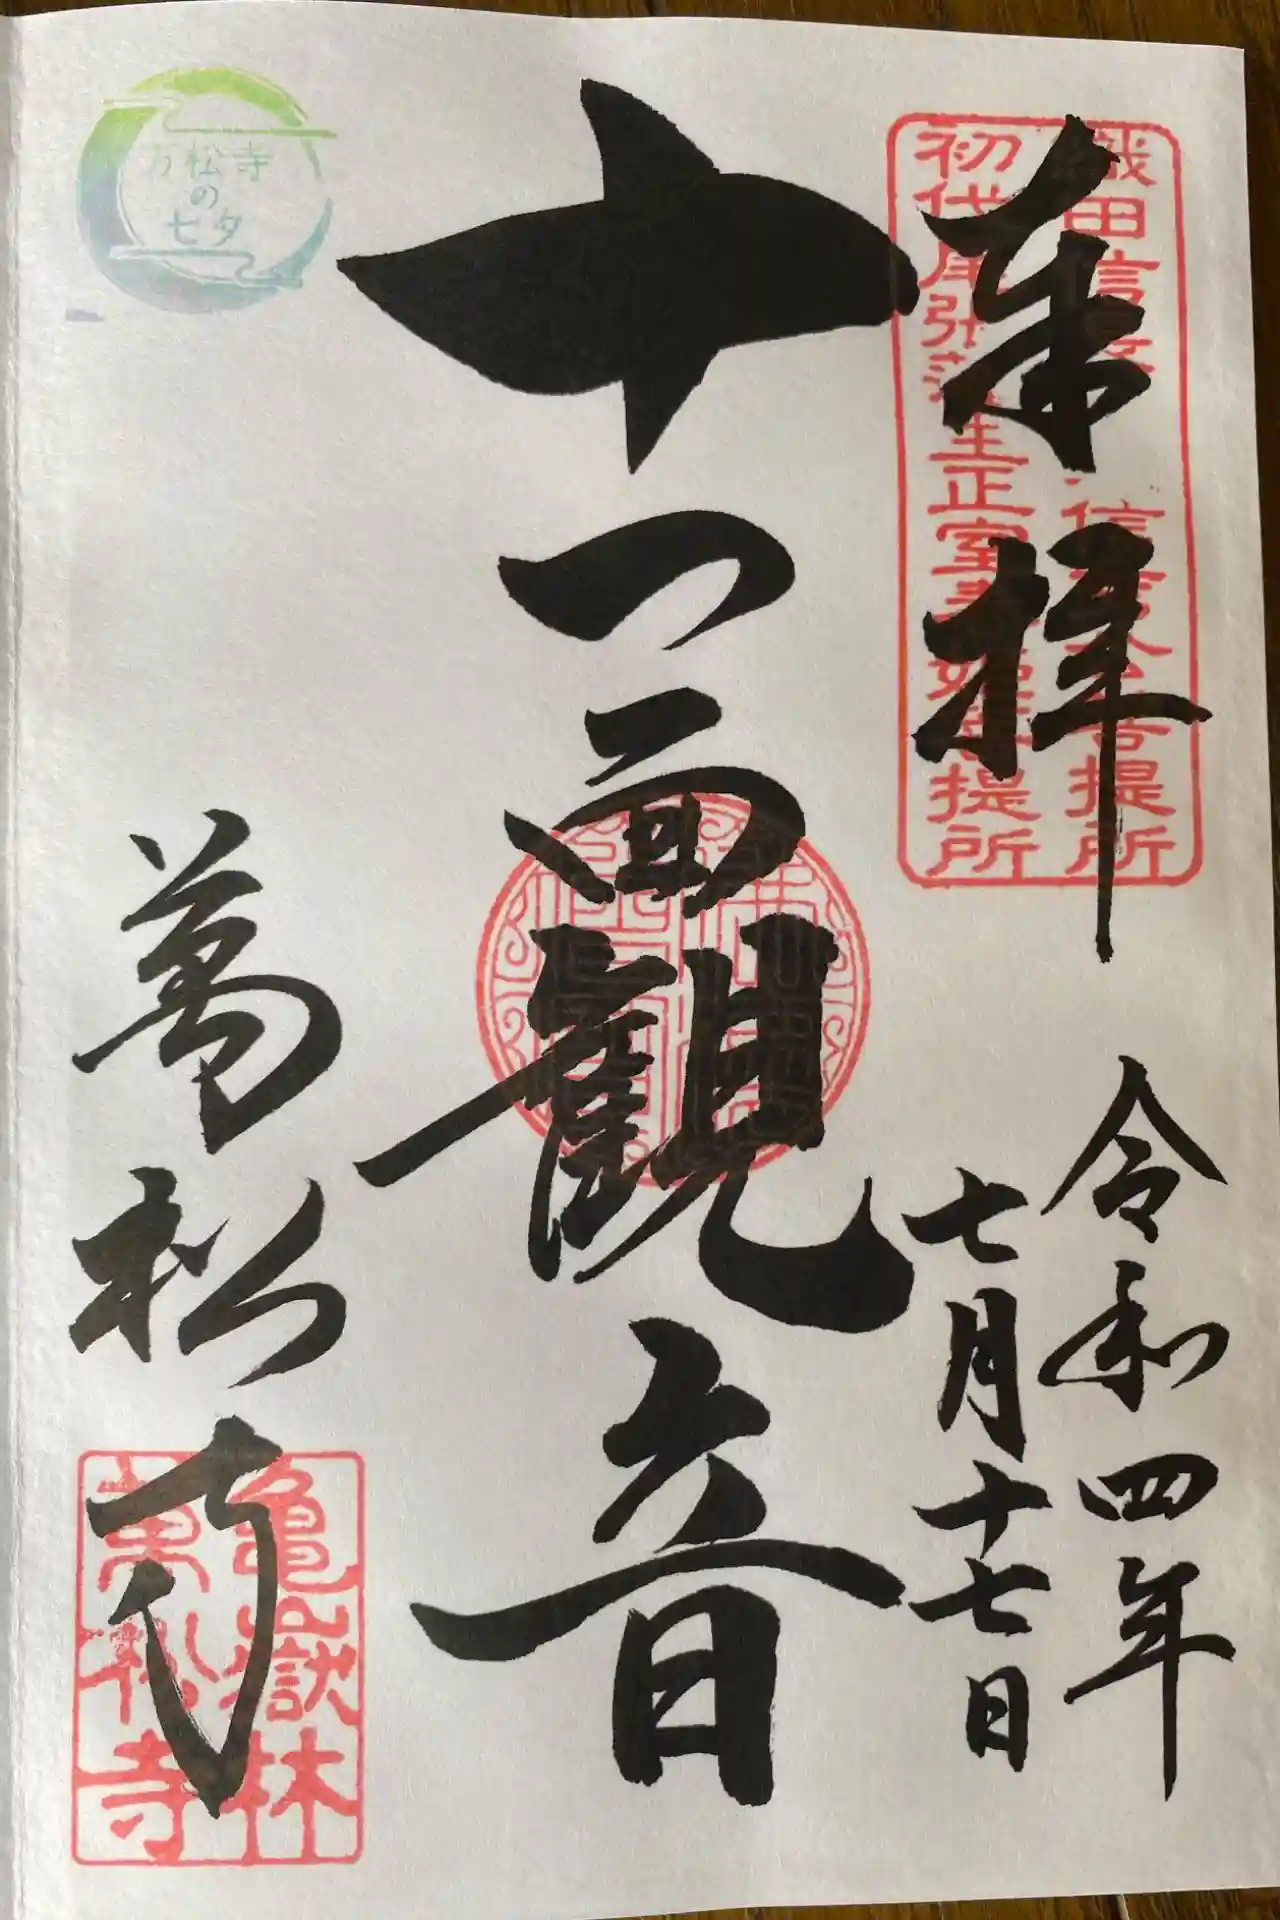 奉拝
織田信 信 菩提所
初代尾張藩主正室 姫菩提所
令和四年
七月十七日
十一面観音
萬松寺
亀嶽林
萬松寺
万松寺
の
七夕